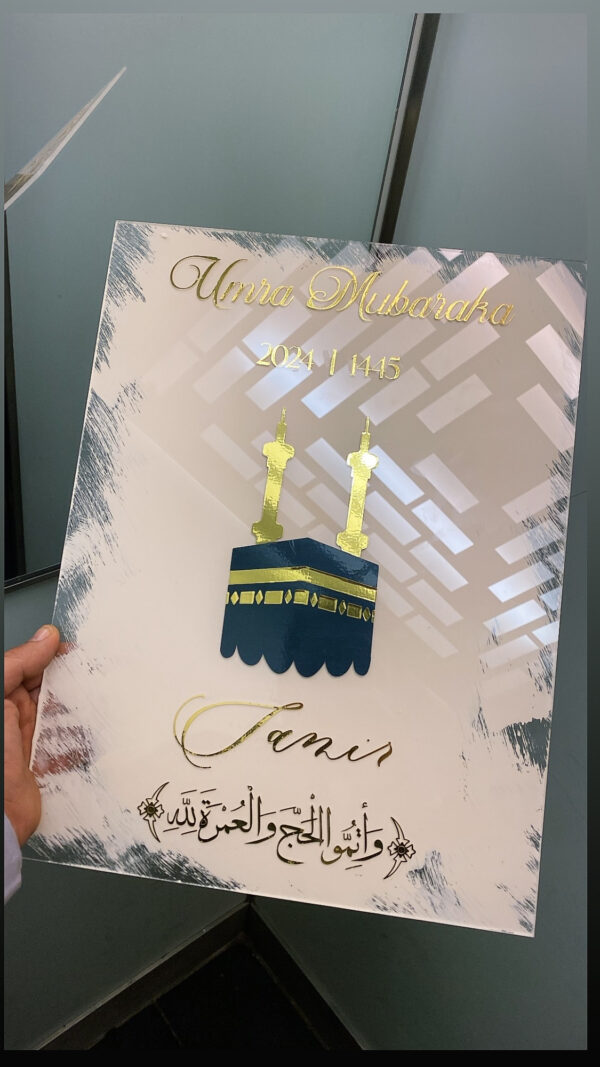 Umra Mubaraka
2024 | 1445
Tanir
وَأَتِمُّوا الْحَجَّ وَالْعُمْرَةَ لِلَّهِ